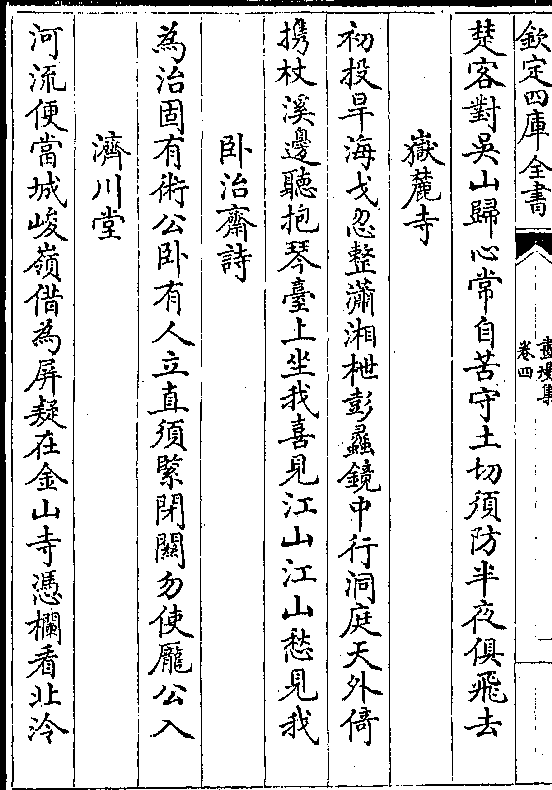 欽定四庫全書
畫墁集
卷四
楚客對吳山歸心常自苦守土切須防半夜俱飛去
嶽麓寺
初投旱海戈忽整瀟湘枻彭蠡鏡中行洞庭天外倚
携杖溪邊聽抱琴臺上坐我喜見江山江山愁見我
卧治齋詩
為治固有術公卧有人立直須緊閉闗勿使龎公入
濟川堂
河流便當城峻嶺借為屏疑在金山寺憑欄看北泠